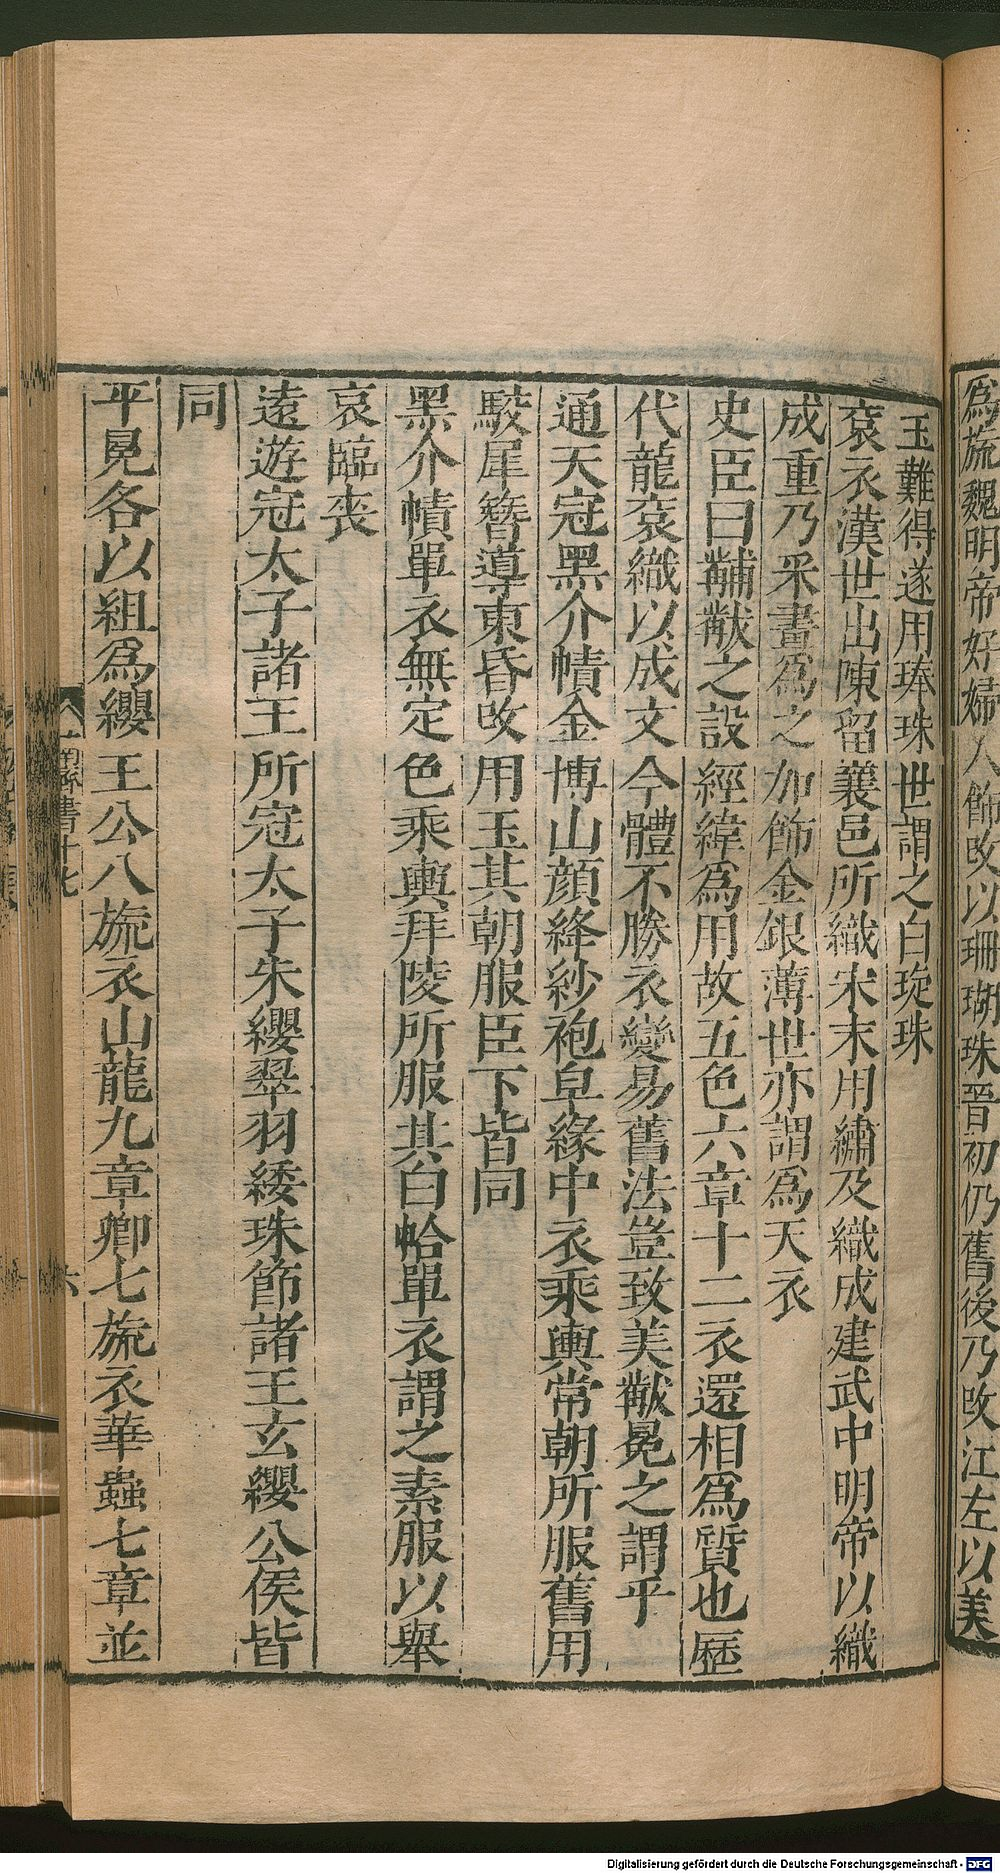 爲旒魏明帝好婦人飾改以珊瑚珠晉初仍舊後乃改江左以美
玉難得遂用琫珠世謂之白琁珠
袞衣漢世出陳留襄邑所織宋末用繡及織成建武中明帝以織
成重乃采畫爲之加飾金銀薄世亦謂爲天衣
史臣曰黼黻之設經緯爲用故五色六章十二衣還相爲質也歷
代龍袞織以成文今體不勝衣變易舊法豈致美黻冕之謂乎
通天冠黑介幘金博山顔絳紗袍皁緣中衣乘輿常朝所服舊用
駮犀簪導東昏改用玉其朝服臣下皆同
黑介幘單衣無定色乘輿拜陵所服其白帢單衣謂之素服以舉
哀臨喪
遠遊冠太子諸王所冠太子朱纓翠羽緌珠節諸王玄纓公侯皆
同
平冕各以組爲纓王公八旒衣山龍九章卿七旒衣華蟲七章並
南齊書十七
六
Digitalisierung gefördert durch die Deutsche Forschungsgemeinschaft - DFG